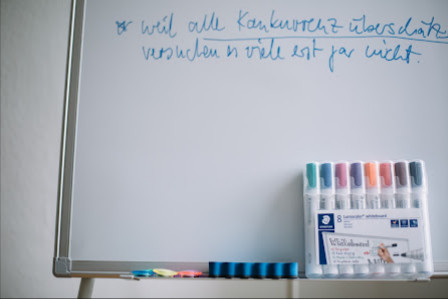 * weil alle Konkurrenz überschätz
versuchen es viele erst gar nicht.
STAEDTLER
8 Lumocolor® whiteboard